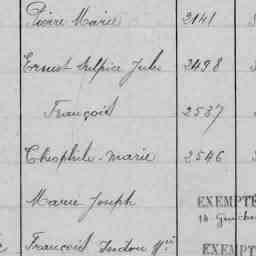 Pierre Marie 2141
Ernest Sulpice Jules 2498
François 2537
Théophile-Marie 2546
Marie Joseph EXEMPTÉ
François
EXEMPTÉ